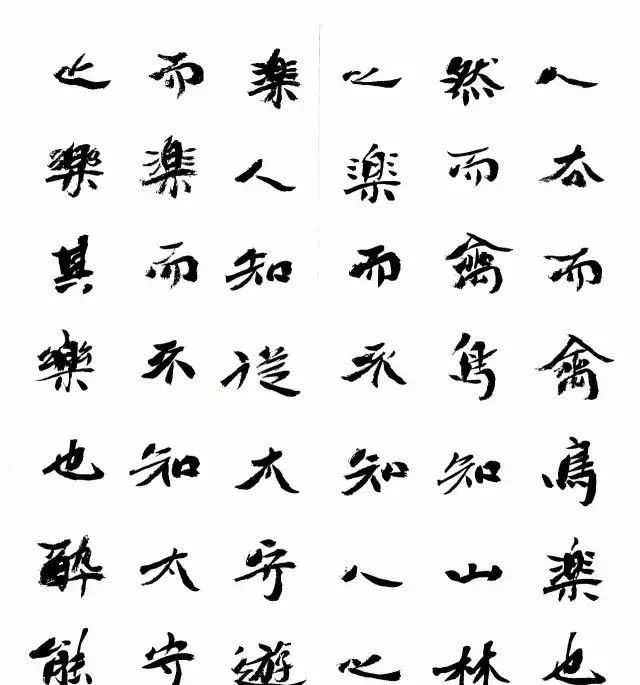 人去而禽鳥樂也
然而禽鳥知山林
之樂而不知人之
樂人知從太守遊
而樂而不知太守
之樂其樂也醉能